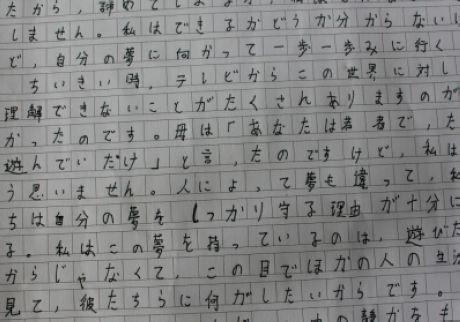 たから，諦めてしまう
しません。私はできるかどうか分からないけ
ど，自分の夢に何かって一歩一歩みに行く
ちいきい時，テレビからこの世界に対し
理解できないことがたくさんありますのが
かったのです。母は「あなたは若者で，た
遊んでいだけ」と言，たのですけど，私は
う思いません。人によって夢も違って，私
ちは自分の夢をしっかり守る理由が十分に
る。私はこの夢を持っているのは，遊びた
からじゃなくて，この目でほかの人の生活
見て，彼たちらに何がしたいからです。